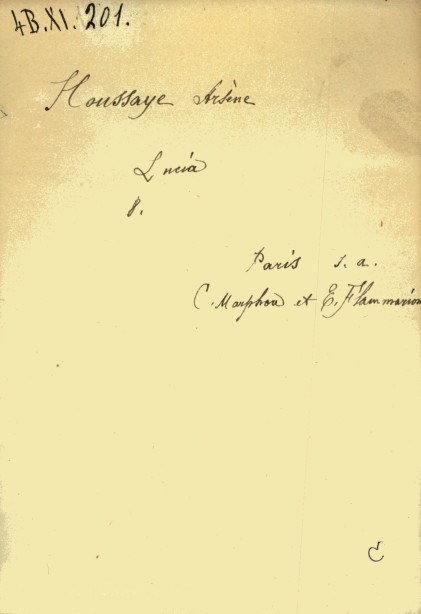 4B.XI.201.
Houssaye Arsène
Lucia
8.
Paris s. a.
C. Marphon et E. Flammarion
C